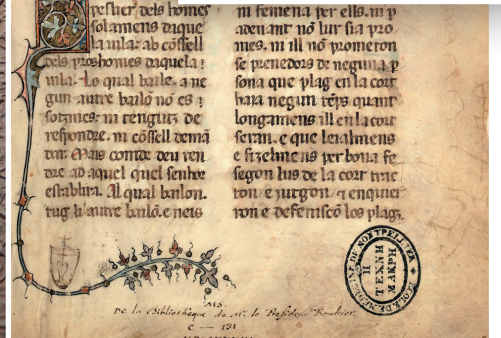 resuer dels homes
solamens daque
la uila: ab cossell
dels proshomes daquela
uila. Lo qual baile. a ne
gun autre bailo nō es
sotzmes: ni tengutz de
respondre. ni cōssell demā
dar. Mais comte deu ren
dre ad aquel quel senhor
establira. Al qual bailon.
tug li autre bailo. e neis
ni femena per ells. ni p
adenant nō lur sia pro
mes. ni ill nō prometon
se prenedors de neguna p
sona que plag en la cort
haia negun tēps quant
longamens ill en la cort
seran. e que leialmens
e fizelmens per bona fe
segon lus de la cort trac
ton e iutgon e enquiei
ron e defenisco los plags.
MS.
De la Bibliothèque de Mr. le Président Bouhier.
C — 131
ECOLE DE MEDECINE DE MONTPELLIER
Η
ΤΕΧΝΗ
ΜΑΚΡΗ